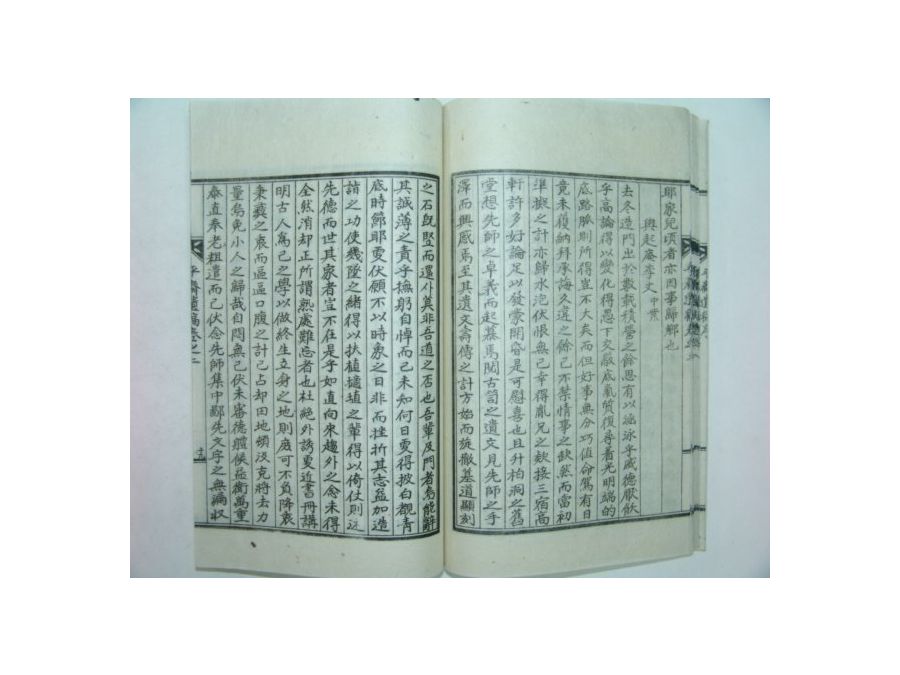 耶家兒頃者亦因事歸鄉也
與起菴李丈中業
去冬造門出於數載積營之餘思有以涵泳乎盛德厭飫
乎高論得以變化得愚下交敲底氣質復尋看光明端的
底路脈則所得豈不大矣而但好事無分巧值命駕有日
竟未獲納拜承誨久違之餘已不禁情事之缺然而當初
準擬之計亦歸水泡伏悵無已幸得胤兄之欵接三宿高
軒許多好論足以發蒙開昏是可慰喜也且升柏洞之舊
堂想先師之卓義而起慕焉閱古笥之遺文見先師之手
澤而興感焉至其遺文壽傳之計方始而旋撤墓道顯刻
之石旣竪而還仆莫非吾道之否也吾輩及門者烏能辭
其誠薄之責乎撫躬自悼而已未知何日更得披白覩青
底時節耶更伏願不以時象之日非而挫折其志益加造
詣之功使幾墜之緒得以扶植擿埴之輩得以倚仗則
先德而世其家者豈不在是乎如直向來趨外之念未得
全然消却正所謂熟處難忘者也杜絶外誘更近書冊講
明古人爲己之學以做終生立身之地則庶可不負降衷
秉彛之衷而區區口腹之計已占却田地頓沒克將去力
量烏免小人之歸哉自悶無已伏未審德體候益衛萬重
奉直奉老粗遣而已伏念先師集中鄙先文字之無漏收